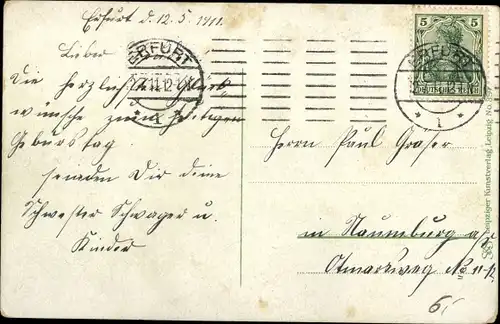 Erfurt d. 12. 5. 1911.
Lieber
Die herzlichsten Glück
wünsche zum heutigen
Geburstag
senden Dir deine
Schwester Schwager u.
Kinder
ERFURT
1
5
5
DEUTSCHES REICH
ERFURT
1
Herrn Paul Graser
in Naumburg a/S.
Otmarsweg No
Leipziger Kunstverlag Leipzig No.